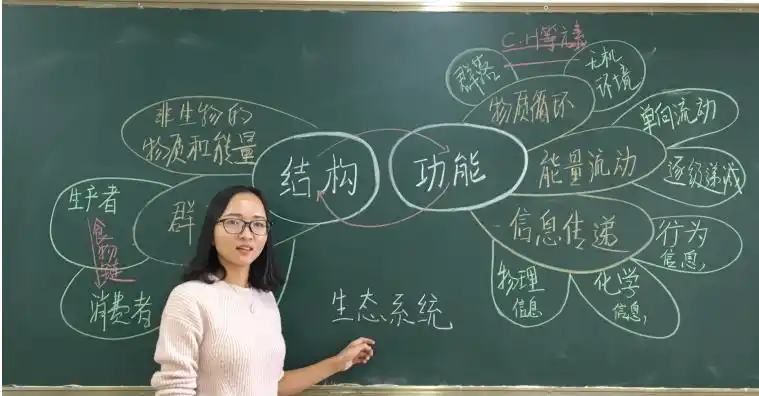 C.H等元素
群落
无机
环境
非生物的
物质和能量
物质循环
单向流动
结构
功能
能量流动
逐级递减
生产者
群
食物链
信息传递
行为
信息
消费者
物理
信息
化学
信息
生态系统